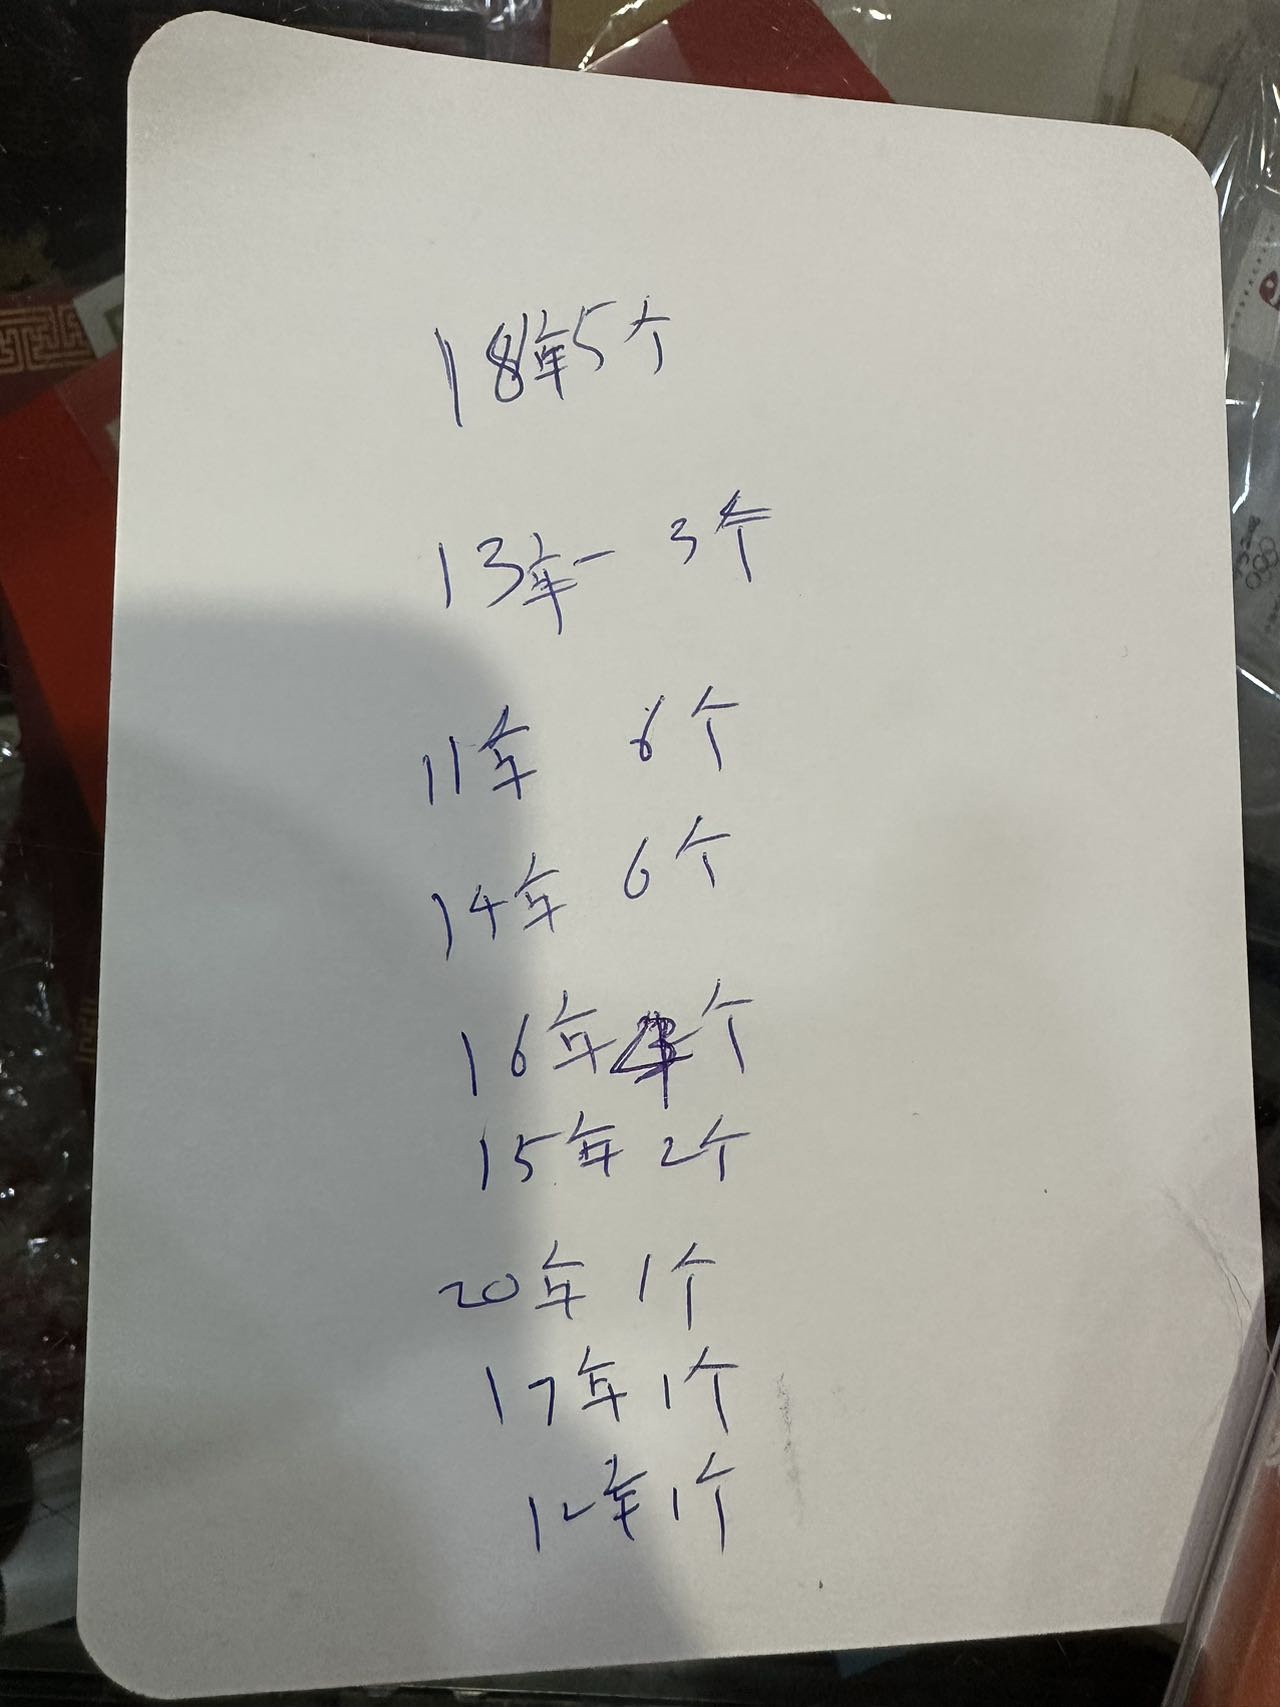 18年5个
13年- 3个
11年 6个
14年 6个
16年4个
15年2个
20年 1个
17年1个
12年1个